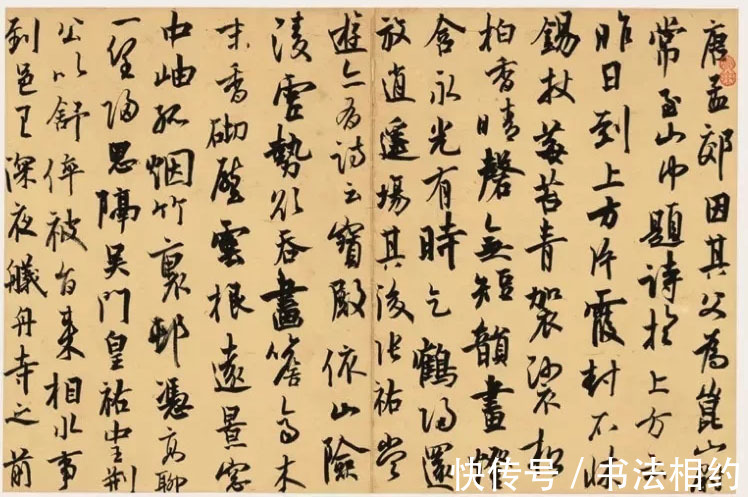 唐孟郊因其父為崑山尉
常至山中題詩於上方
昨日到上方片霞封石牀
錫杖莓苔青袈裟松
柏香晴磬無短韻晝燈
含永光有時乞鶴歸還
放逍遙場其後張祜嘗
遊亦有詩云寶殿依山險
凌虛勢欲吞畫簷齊木
末香砌壓雲根遠景窗
中岫孤烟竹裏邨憑高聊
一望歸思隔吳門皇祐中王荆
公以舒倅被旨來相水事
到邑已深夜艤舟寺之前
快传号 / 书法相约